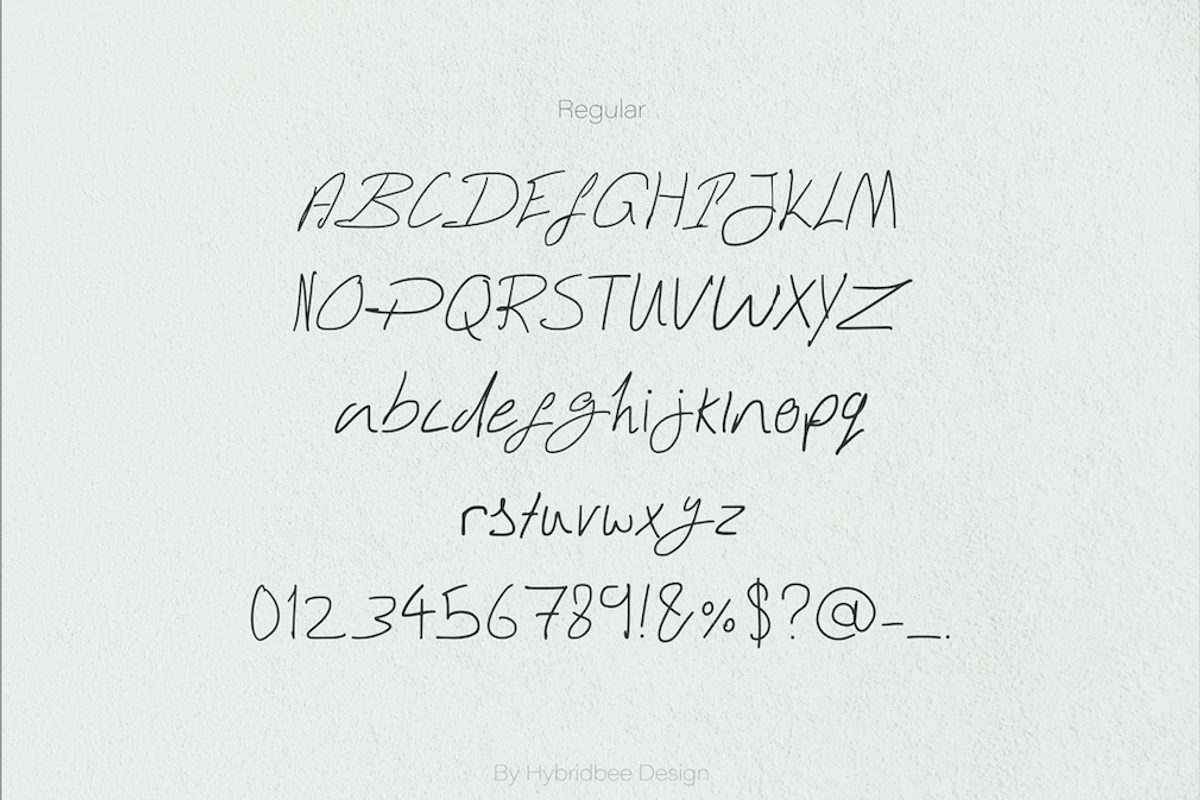 Regular
ABCDEFGHIJKLM
NOPQRSTUVWXYZ
abcdefghijklnopq
rstuvwxyz
0123456789!&%$?@-_.
By Hybridbee Design